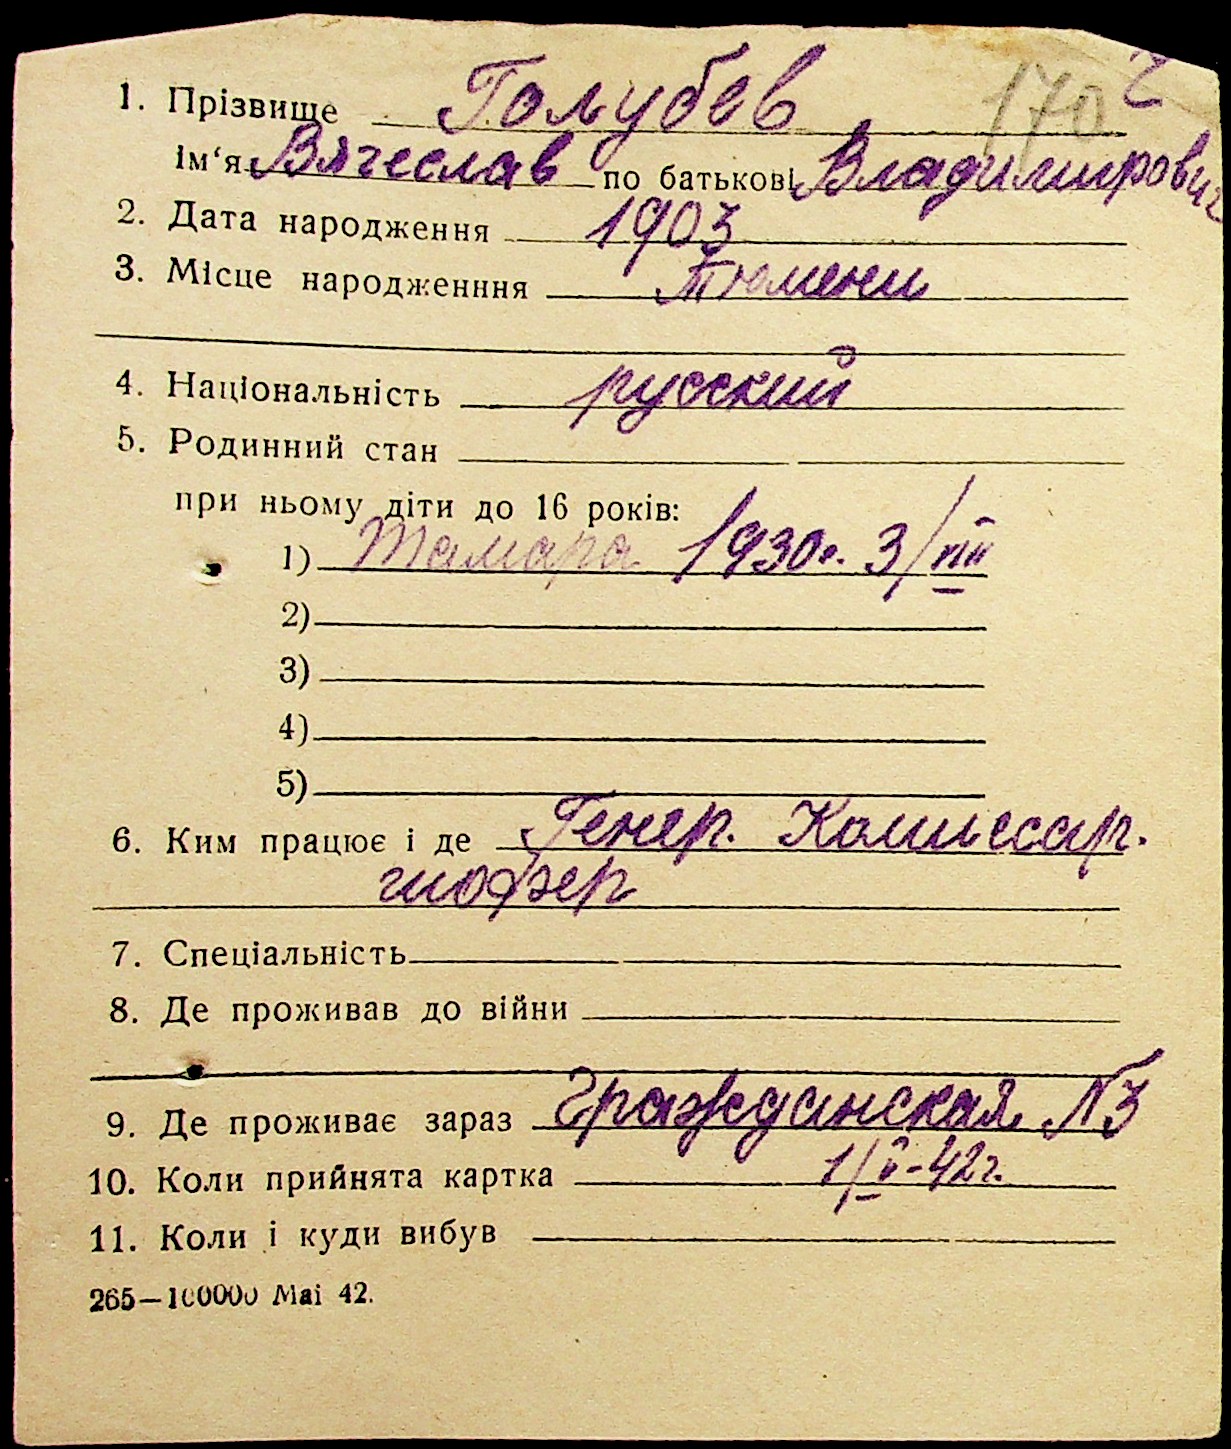 170 2
1. Прізвище Голубев
Ім‘я Вячеслав по батькові Владимирович
2. Дата народження 1903
3. Місце народженння Тюмени
4. Національність русский
5. Родинний стан
при ньому діти до 16 років:
1) Тамара 1930г. 3/VIII
2)
3)
4)
5)
6. Ким працює і де Генер. Комиссар.
шофер
7. Спеціальність
8. Де проживав до війни
9. Де проживає зараз Гражданская №3
10. Коли прийнята картка 1/V-42г.
11. Коли і куди вибув
265—100000 Mai 42.